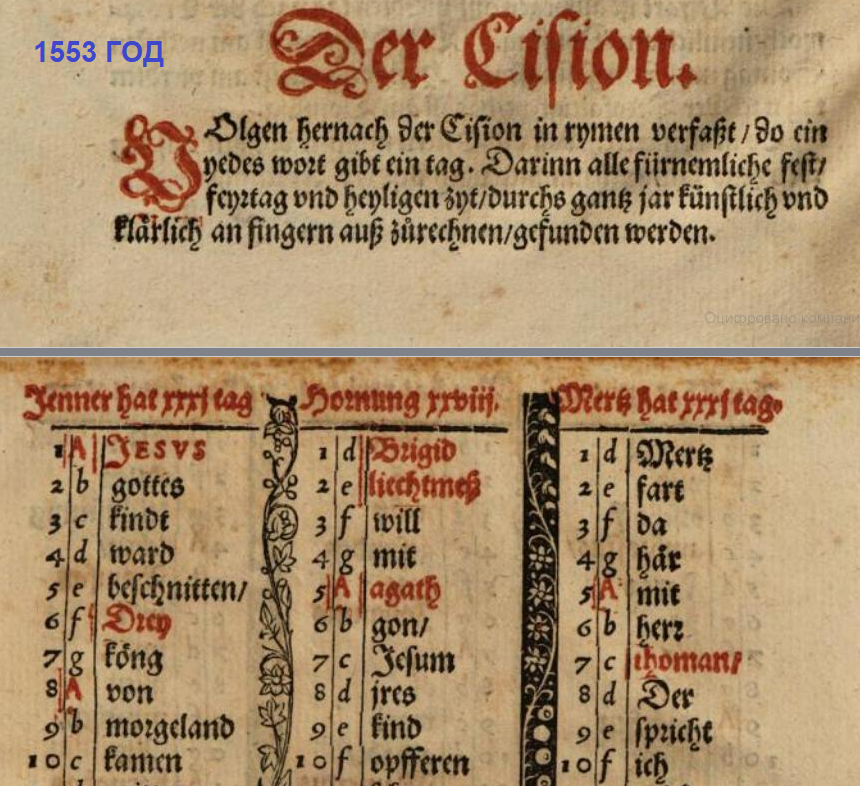 1553 ГОД
Der Cision.
VOlgen hernach der Cision in rymen verfaßt / do ein
yedes wort gibt ein tag. Darinn alle fürnemliche fest/
feyrtag vnd heyligen zyt/durchs gantz jar künstlich vnd
klärlich an fingern auß zůrechnen/gefunden werden.
Оцифровано
Jenner hat xxxj tag
1 A JESVS
2 b gottes
3 c kindt
4 d ward
5 e beschnitten/
6 f Drey
7 g köng
8 A von
9 b morgeland
10 c kamen
Hornung xxviij.
1 d Brigid
2 e liechtmeß
3 f will
4 g mit
5 A agath
6 b gon/
7 c Jesum
8 d jres
9 e kind
10 f opfferen
Mertz hat xxxj tag.
1 d Mertz
2 e fart
3 f da
4 g här
5 A mit
6 b herr
7 c thoman/
8 d Der
9 e spricht
10 f ich